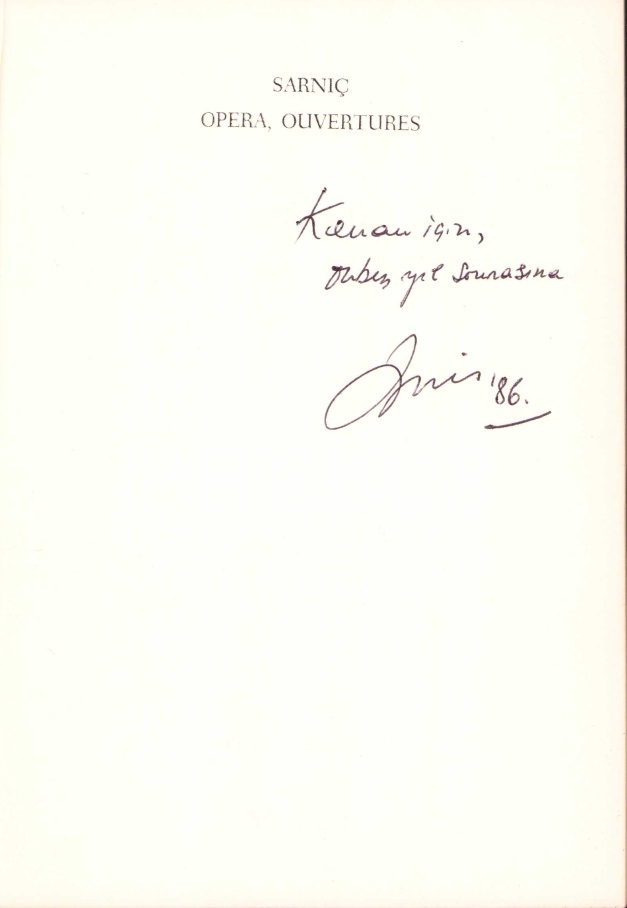 SARNIÇ
OPERA, OUVERTURES
Kenan için,
onbeş yıl sonrasına
Enis '86.